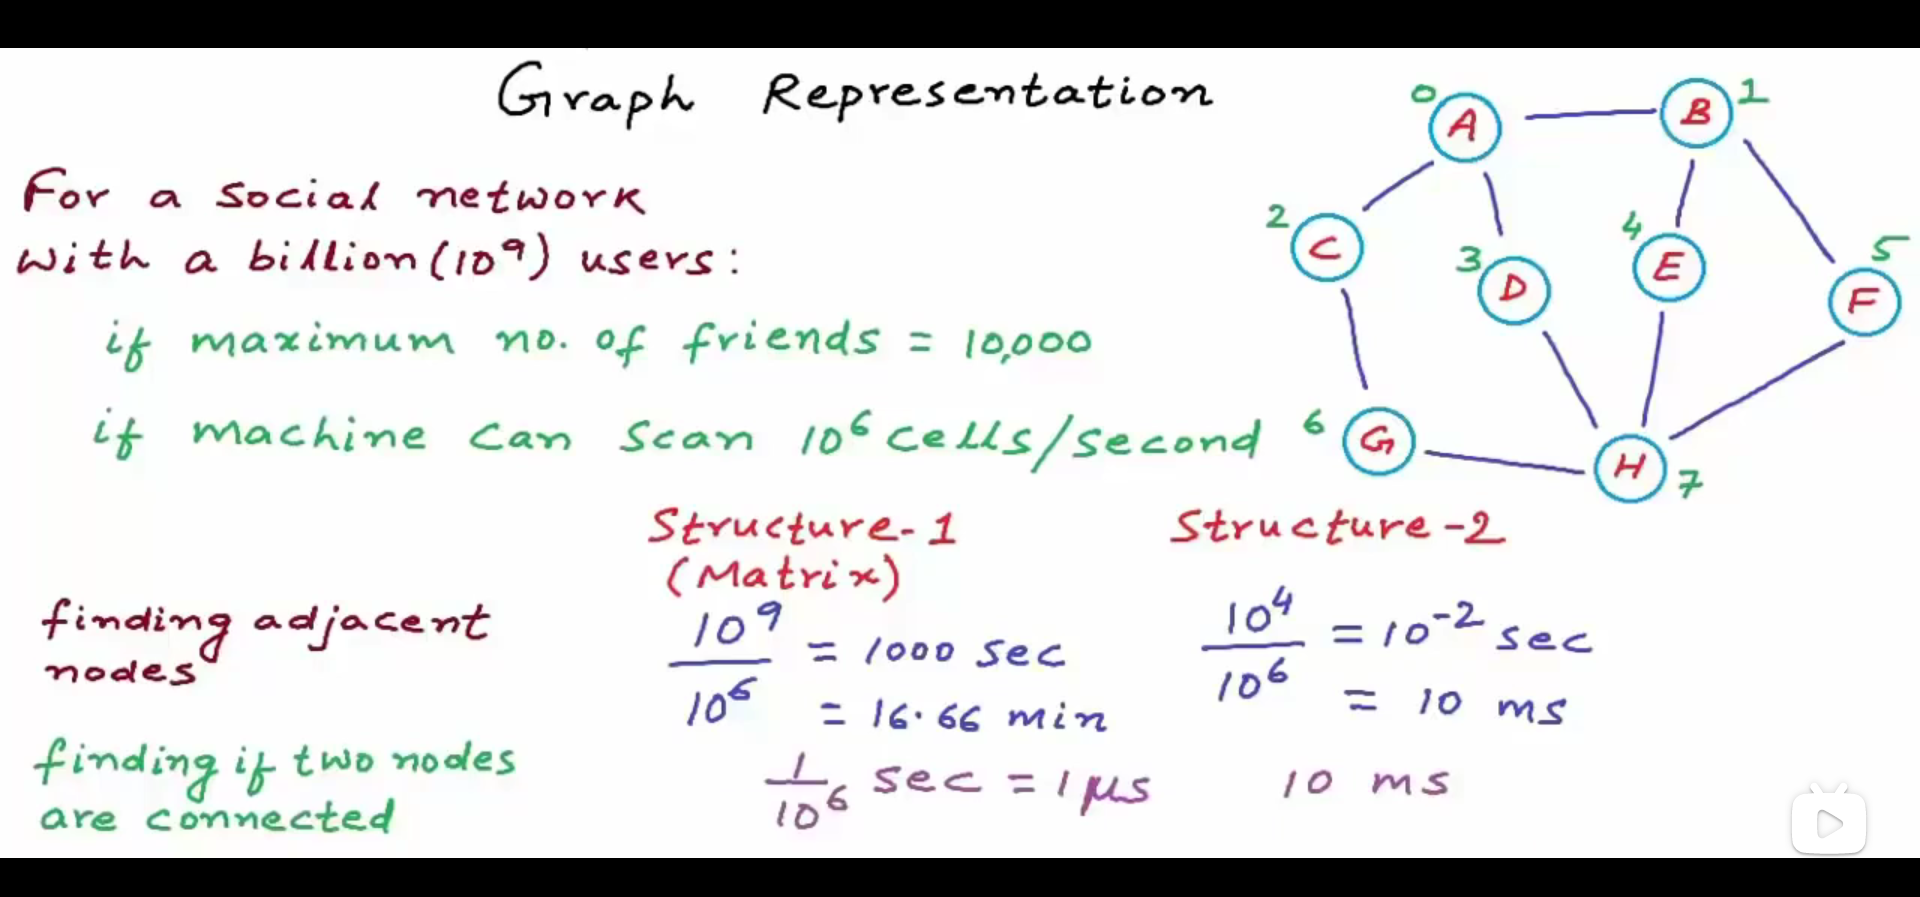 Graph Representation
For a social network
with a billion (10⁹) users:
if maximum no. of friends = 10,000
if machine can scan 10⁶ cells/second
0 A
B 1
2 C
3 D
4 E
5 F
6 G
H 7
Structure-1
(Matrix)
Structure-2
finding adjacent
nodes
10⁹/10⁶ = 1000 sec
= 16.66 min
10⁴/10⁶ = 10⁻² sec
= 10 ms
finding if two nodes
are connected
1/10⁶ sec = 1 μs
10 ms